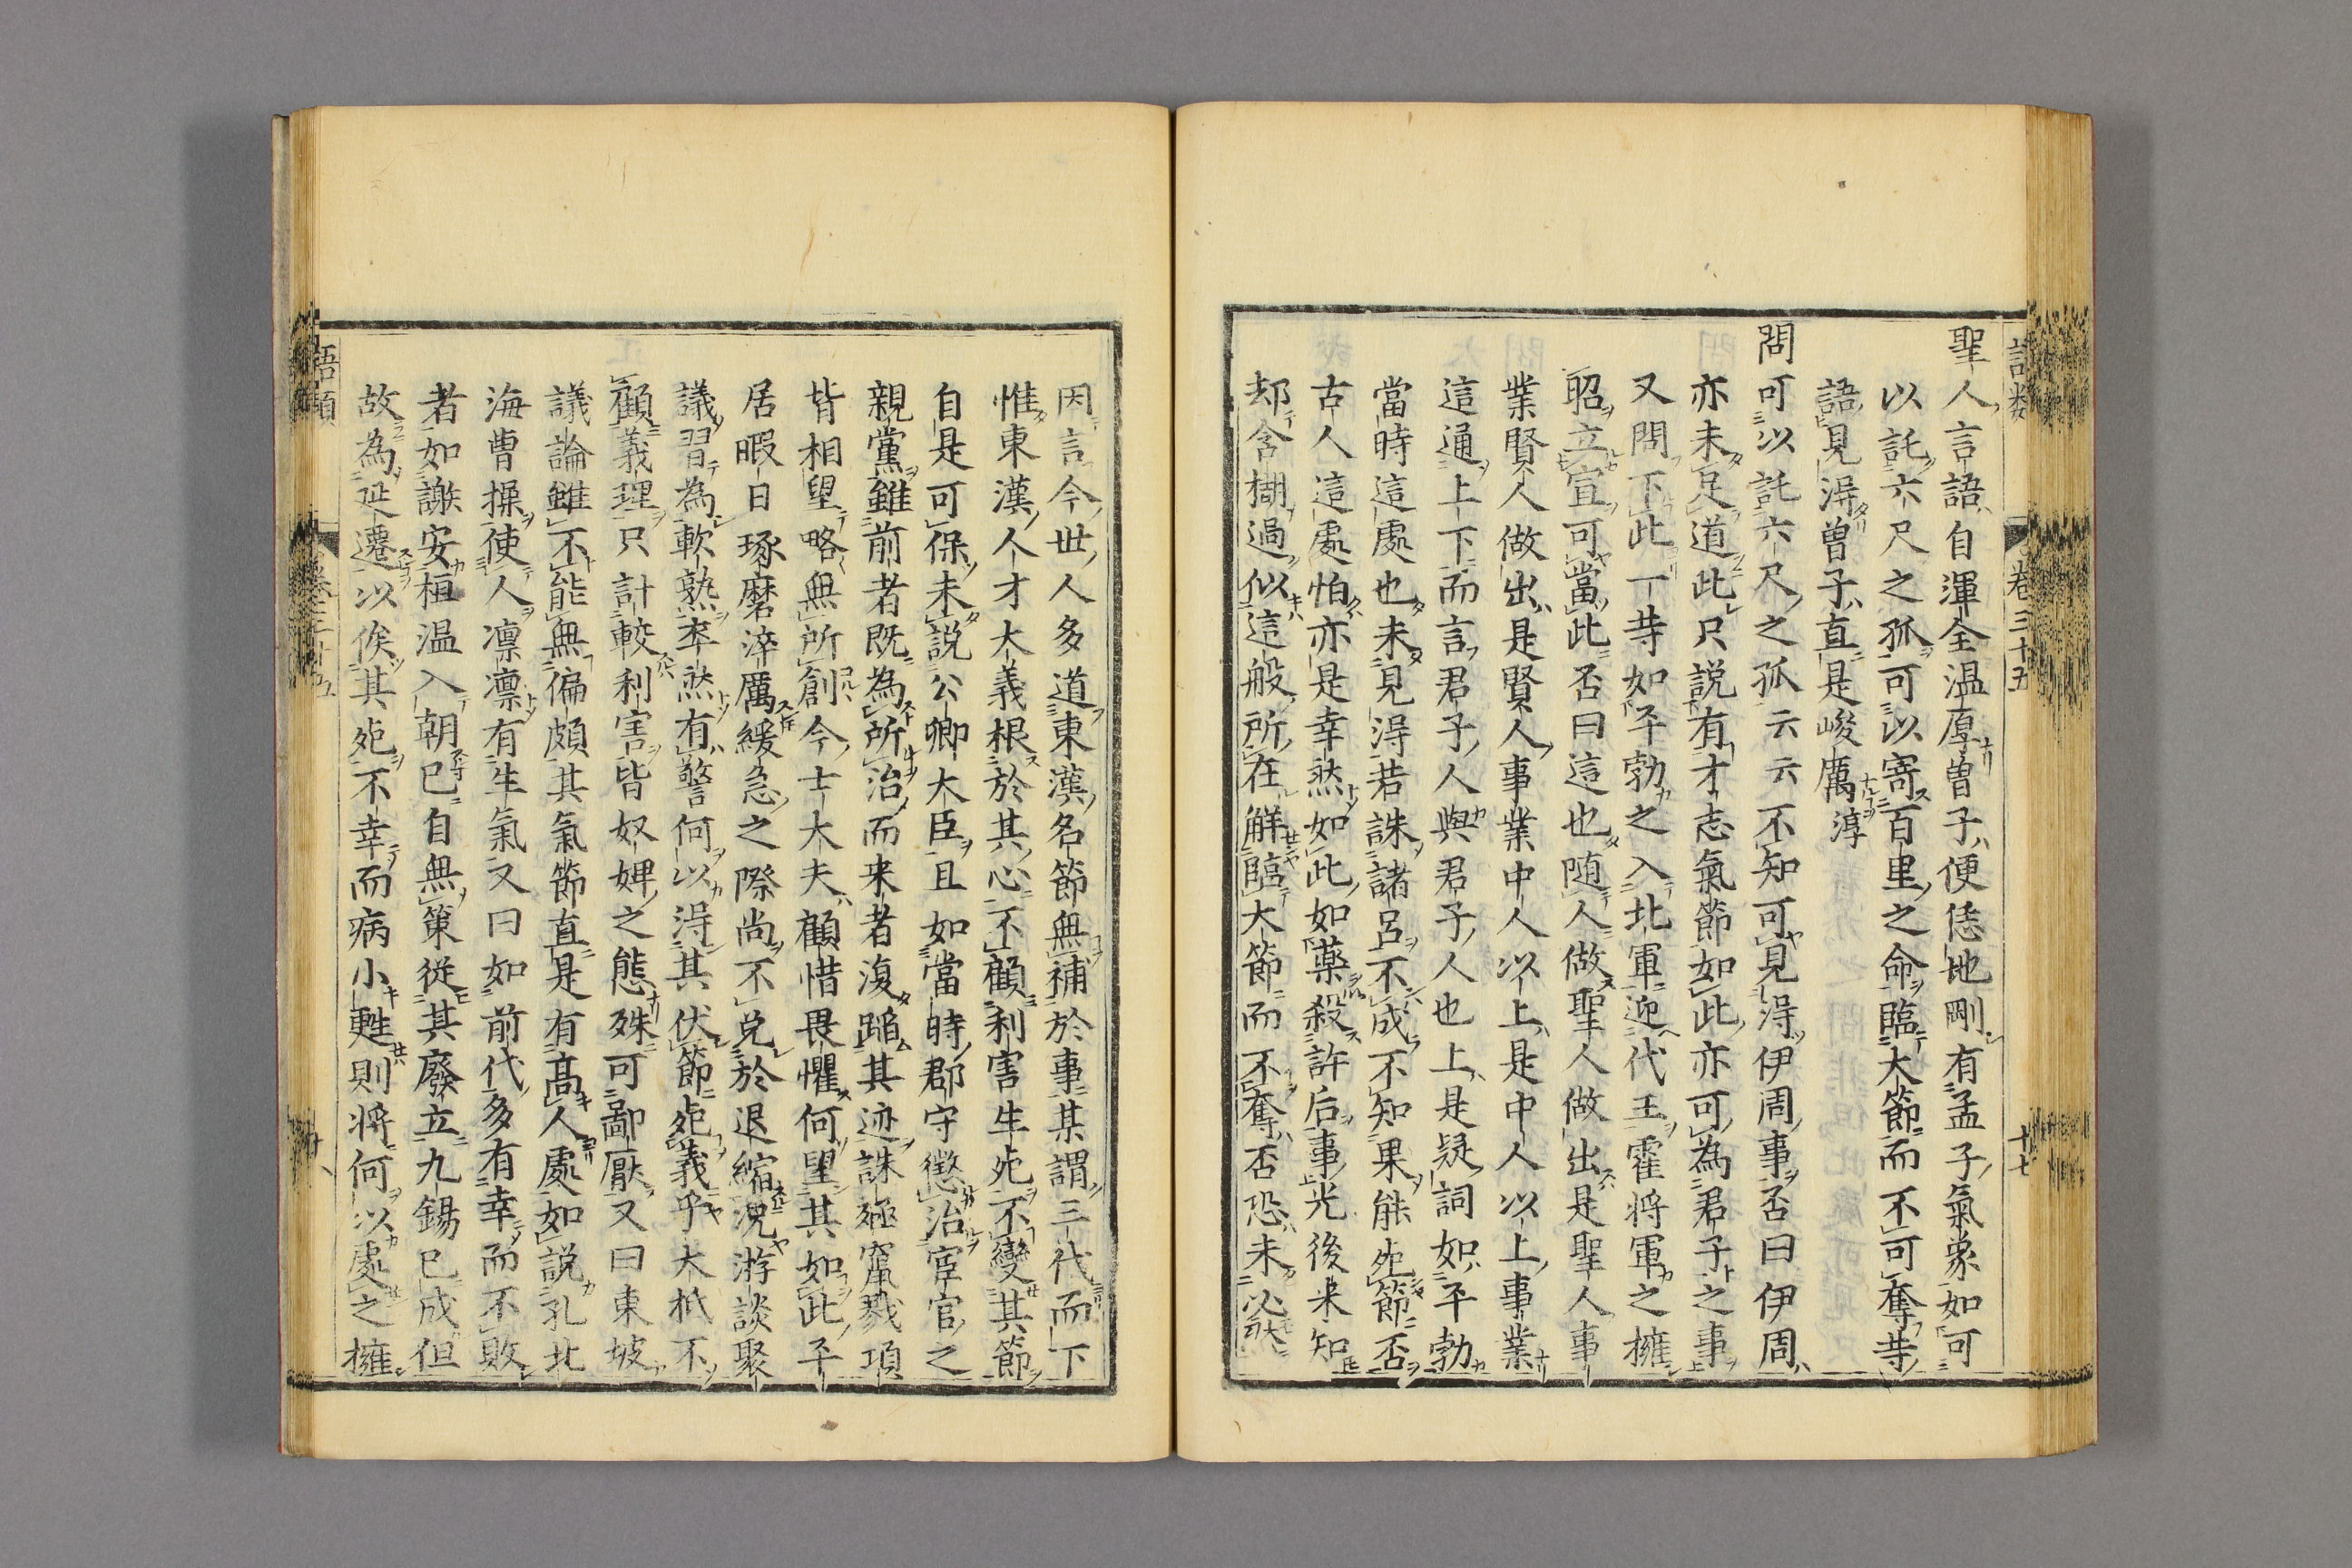 語類
卷三十五
十七
聖人言語自渾全温厚曽子便恁地剛有孟子氣象如可
以託六尺之孤可以寄百里之命臨大節而不可奪等
語見得曽子直是峻厲淳
問可以託六尺之孤云云不知可見得伊周事否曰伊周
亦未足道此只説有才志氣節如此亦可為君子之事
又問下此一等如平勃之入北軍迎代王霍将軍之擁
昭立宣可當此否曰這也随人做聖人做出是聖人事
業賢人做出是賢人事業中人以上是中人以上事業
這通上下而言君子人與君子人也上是疑詞如平勃
當時這處也未見得若誅諸呂不成不知果能死節否
古人這處怕亦是幸然如此如藥殺許后事光後来知
却含糊過似這般所在觧臨大節而不奪否恐未必然
因言今世人多道東漢名節無補於事某謂三代而下
惟東漢人才大義根於其心不顧利害生死不變其節
自是可保未説公卿大臣且如當時郡守懲治宦官之
親黨雖前者既為所治而来者復蹈其迹誅殛竄戮項
背相望略無所創今士大夫顧惜畏懼何望其如此平
居暇日琢磨淬厲緩急之際尚不免於退縮況游談聚
議習為軟熟卒然有警何以得其伏節死義乎大抵不
顧義理只計較利害皆奴婢之態殊可鄙厭又曰東坡
議論雖不能無偏頗其氣節直是有高人處如説孔北
海曹操使人凛凛有生氣又曰如前代多有幸而不敗
者如謝安桓温入朝已自無策從其廢立九錫已成但
故為延遷以俟其死不幸而病小甦則将何以處之擁
語類
卷三十五